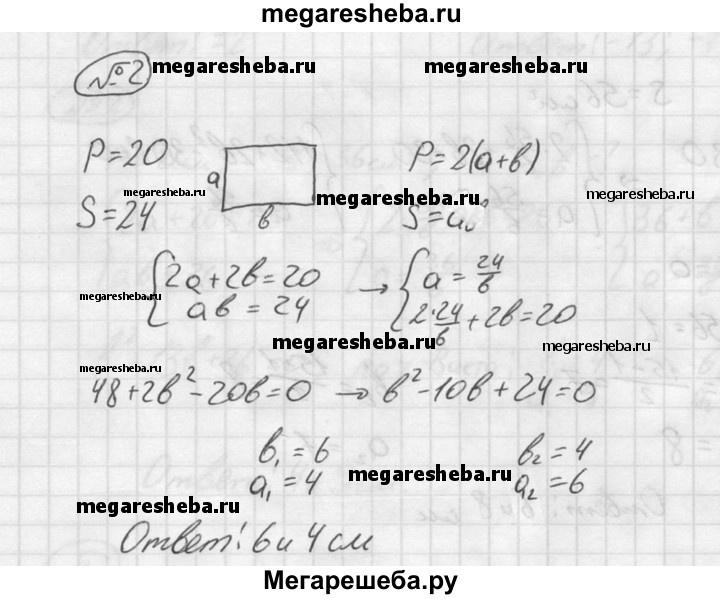 megaresheba.ru
№2 megaresheba.ru megaresheba.ru
P=20 a P=2(a+в)
megaresheba.ru megaresheba.ru megaresheba.ru
S=24 в S=
{2a+2в=20 → {a = 24/в
megaresheba.ru ав = 24 2·24/в+2в=20
megaresheba.ru megaresheba.ru
megaresheba.ru
48+2в²-20в=0 → в²-10в+24=0
в₁=6 в₂=4
a₁=4 megaresheba.ru a₂=6
megaresheba.ru
Ответ: 6 и 4 см
Мегарешеба.ру